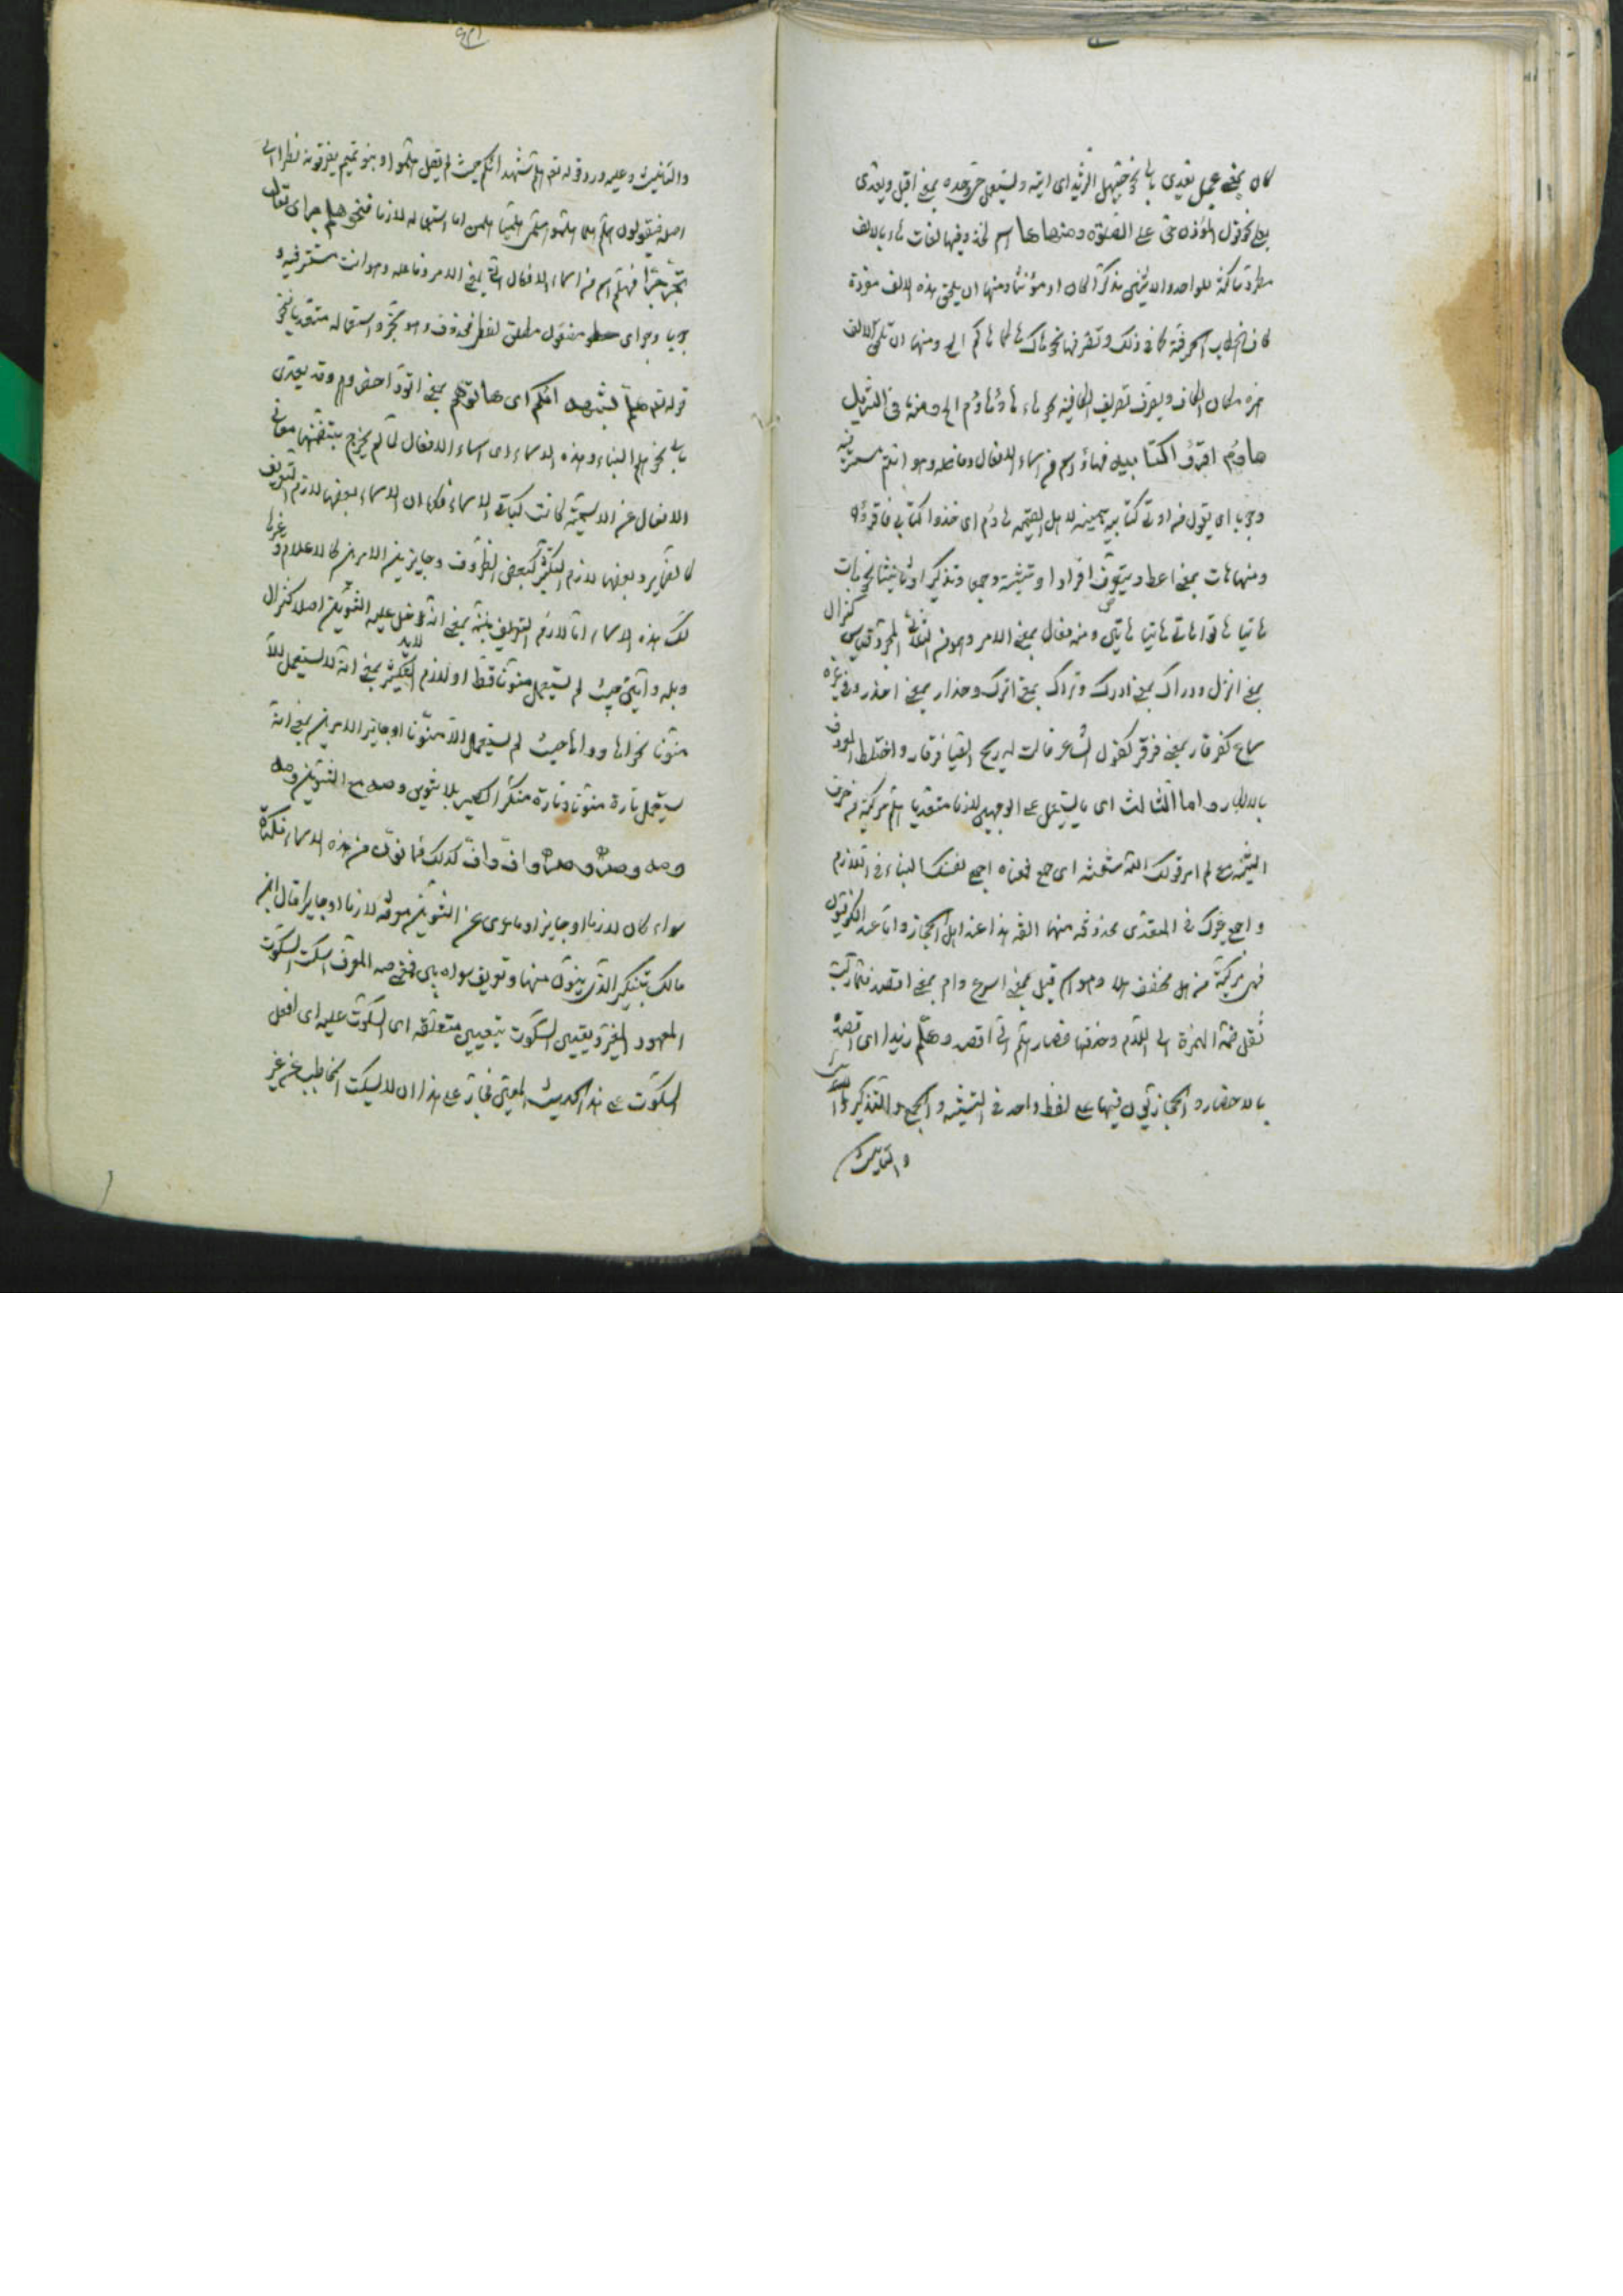 كان بمعنى عجل تعدى بالى نحو حيهل الى الثريد اى ايته ويستعمل حى وحده بمعنى اقبل ويعدى
بعلى نحو قول المؤذن حى على الصلوة ومنها ها اسم لخذ وفيها لغات هاء بالالف
مفردة ساكنة للواحد والاثنين مذكرا كان او مؤنثا ومنها ان يلحق بهذه الالف مفردة
كاف الخطاب الحرفية كما فى ذلك وتصرفها نحو هاك هاكما هاكم الى ومنها ان تلحق الالف
همزة مكان الكاف ويصرف تصريف الكاف فيه نحو هاء هاؤما هاؤم الى ومنه فى التنزيل
هاؤم اقرؤا كتابيه فهاؤم اسم من اسماء الافعال وفاعله وهو انتم مستتر فيه
وجوبا اى يقول من اوتى كتابه بيمينه لاهل القيمة هاؤم اى خذوا كتابى فاقرؤه
ومنها هات بمعنى اعط ويتصرف افرادا وتثنية وجمعا وتذكيرا وتانيثا نحو هات
هاتيا هاتوا هاتى هاتيا هاتين ومنه فعال بمعنى الامر وهو من الثلاثى المجرد قياسى كنزال
بمعنى انزل ودراك بمعنى ادرك وتراك بمعنى اترك وحذار بمعنى احذر وفى غيره
سماع كقرقار بمعنى قرقر كقول الشاعر قالت له ريح الصبا قرقار واختلط المعروف
بالانكار واما الثالث اى ما يستعمل على الوجهين لازما متعديا هلم مركبة من حرف
التنبيه مع لم امر من قولك لم الله شعثه اى جمع فمعناه اجمع نفسك الينا فى اللازم
واجمع غيرك فى المتعدى محذوفة منها الفه هذا عند اهل الحجاز واما عند الكوفيين
فهى مركبة من هل مخفف هلا وهو اسم فعل بمعنى اسرع وام بمعنى اقصد فلما ركبت
نقل ضمة الهمزة الى اللام وحذفها فصار هلم اى اقصد وهلم زيدا اى اقصده
بالاحضار والحجازيون فيها على لفظ واحد فى التثنية والجمع والتذكير
والتانيث
والتانيث وعليه ورد قوله تع هلم شهداءكم حيث لم يقل هلموا وبنو تميم يصرفونه نظرا الى
اصله فيقولون هلم هلما هلموا هلمى هلما هلممن اما استعماله لازما فنحو هلم جرا اى تعال
تجر جرا فهلم اسم من اسماء الافعال بمعنى الامر وفاعله وهو انت مستتر فيه و
جوبا وجرا مفعول مطلق لفعل محذوف وهو تجر واستعماله متعديا نحو
قوله تع هلم شهداءكم اى هاتوهم بمعنى احضروهم وقد يعدى
بالى نحو هلم الينا وهذه الاسماء اى اسماء الافعال لما لم يخرج بتضمنها معانى
الافعال عن الاسمية كانت كباقى الاسماء فكما ان الاسماء بعضها لازم التعريف
كالضماير وبعضها لازم التنكير كبعض الظروف وجايز بين الامرين كالاعلام وغيرها
لك هذه الاسماء اما لازم التعريف بمعنى انه لم يدخل عليه التنوين اصلا كنزال
وبله وامين حيث لم يستعمل منونا قط او لازم التنكير بمعنى انه لا يستعمل الا
منونا نحو ايها وواها حيث لم يستعمل الا منونا او جايز الامرين بمعنى انه
يستعمل تارة منونا وتارة منكرا كصه بلا تنوين وصه مع التنوين ومه
ومه وصه وصه واف واف كذلك فما نون من هذه الاسماء فنكرة
سواء كان لازما او جايزا وما عرى عن التنوين معرفة لازما او جايزا قال ابن
مالك بتنكير الذى ينون منها وتعريف سواه بين فمعنى صه المعرف اسكت السكوت
المعهود المعين وتعيين السكوت بتعيين متعلقه اى السكوت عليه اى افعل
السكوت على هذا الحديث المعين فجاز على هذا ان لا يسكت المخاطب عن غير